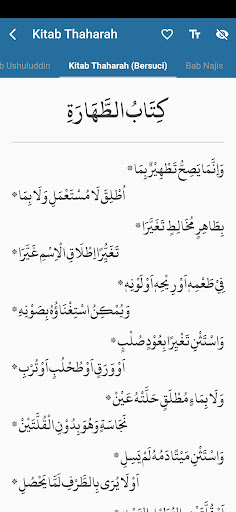 Kitab Thaharah
b Ushuluddin
Kitab Thaharah (Bersuci)
Bab Najis
كِتَابُ الطَّهَارَةِ
وَاِنَّمَا يَصِحُّ تَطْهِيْرٌ بِمَا *
* اُطْلِقَ لَا مُسْتَعْمَلٍ وَلَا بِمَا
بِطَاهِرٍ مُخَالِطٍ تَغَيَّرَا *
* تَغَيُّرًا اِطْلَاقَ الْاِسْمِ غَيَّرَا
فِيْ طَعْمِهِ اَوْ رِيْحِهِ اَوْ لَوْنِهِ *
* وَيُمْكِنُ اسْتِغْنَاؤُهُ بِصَوْنِهِ
وَاسْتَثْنِ تَغْيِيْرًا بِعُوْدٍ صُلْبٍ *
* اَوْ وَرَقٍ اَوْ طُحْلُبٍ اَوْ تُرْبِ
وَلَا بِمَاءٍ مُطْلَقٍ حَلَّتْهُ عَيْنْ *
* نَجَاسَةٍ وَهُوَ بِدُوْنِ الْقُلَّتَيْنْ
وَاسْتَثْنِ مَيْتًا دَمُهُ لَمْ يَسِلِ *
* اَوْ لَا يُرَى بِالطَّرْفِ لَمَّا يَحْصُلِ